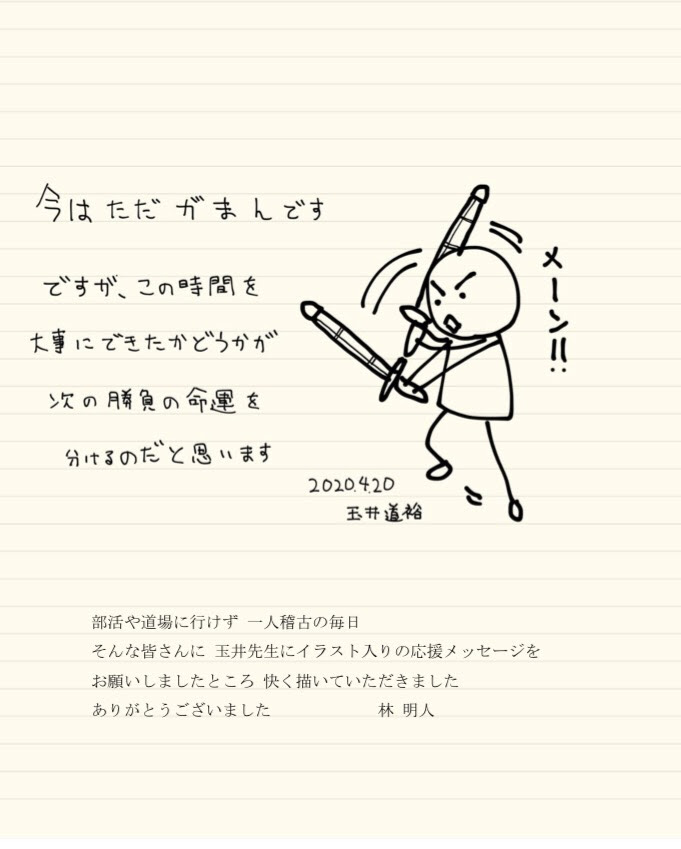 今はただがまんです
ですが、この時間を
大事にできたかどうかが
次の勝負の命運を
分けるのだと思います
メーン!!
2020.4.20
玉井道裕
部活や道場に行けず 一人稽古の毎日
そんな皆さんに 玉井先生にイラスト入りの応援メッセージを
お願いしましたところ 快く描いていただきました
ありがとうございました 林 明人